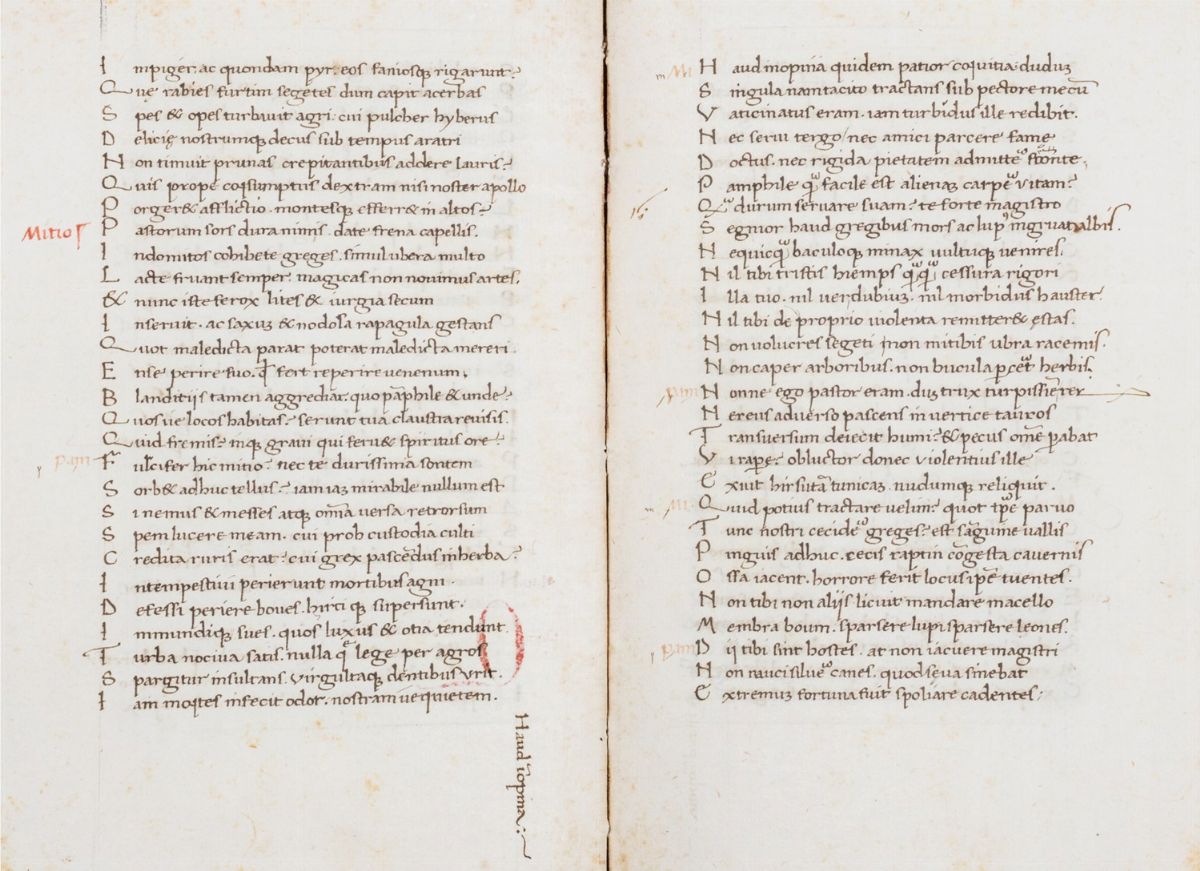 I mpiger. ac quondam pyr. eos faniosqꝫ rigarunt?
Q uę rabies furtim segetes dum capit acerbas
S pes & opes turbavit agri. cui pulcher hyberus
D elicię nostrumqꝫ decus sub tempus aratri
N on timuit prunas crepitantibus addere lauris?
Q uis prope coņsumptus dextram nisi noster apollo
P orger& afflictio. montesqꝫ efferr& in altos?
Mitios
P astorum sors dura nimis. date frena capellis.
I ndomitos cohibete greges. simul ubera multo
L acte fruant semper. magicas non novimus artes.
& nunc iste ferox lites & iurgia secum
I nseruit. ac saxuꝫ & nodosa rapagula gestans
Q uot maledicta parat poterat maledicta mereri.
E nse perire suo. fert reperire venenum.
B landitijs tamen aggrediar. quo pāphile & unde?
Q uos ve locos habitas? serunt tua claustra revisis.
Q uid fremis? inqꝫ gravi qui ferv& spiritus ore
pam F urcifer hic mitio? nec te durissima sontem
S orb& adhuc tellus? iam iaꝫ mirabile nullum est
S i nemus & messes atqꝫ omīa versa retrorsum
S pem lucere meam. cui prob custodia culti
C redita ruris erat? cui grex pascēdus in herba?
I ntempestivi perierunt mortibus agni.
D efessi periere boues. hirci qꝫ supersunt.
I mmundiqꝫ sues. quos luxus & otia tendunt.
T urba nociva satis. nulla lege per agros
S pargitur insultans. virgultaqꝫ dentibus urit.
I am montes infecit odor. nostram ve quietem.
Haud īopina:
Mi H aud inopina quidem patior coņvitia. duduꝫ
S ingula nam tacito tractans sub pectore mecū
V aticinatus eram. iam turbidus ille redibit.
N ec servi tergo/ nec amici parcere fame
D octus. nec rigida pietatem admitte͛ fronte.
P amphile facile est alienaꝫ carpe͛ vitam?
Q durum servare suam? te forte magistro
S egnior haud gregibus mors ac lupꝰ ingruat albis.
N equicqͣ baculoqꝫ minax vultuqꝫ venires.
N il tibi tristis hiemps cessura rigori
I lla tuo. nil ver dubiuꝫ. nil morbidus hauster.
N il tibi de proprio violenta remitter& ęstas.
N on volucres segeti non mitibus ubra racemis.
N on caper arboribus. non bucula parcet herbis.
pam N onne ego pastor eram. duꝫ trux turpissi͛
N ereus adverso pascens in vertice tauros
T ransversum deiecit humi? & pecus omē parabat
V i rape͛? obluctor donec violentius ille
E xuit hirsutā tunicaꝫ nudumqꝫ reliquit.
Mi Q uid potius tractare velim? quot tpē parvo
T unc nostri cecide͛ greges? est sāguine vallis
P inguis adhuc. cecis raptin cōgesta cavernis
O ssa iacent. horrore ferit locus ipē tuentes.
N on tibi non alijs licuit mandare macello
M embra boum. sparsere lupi sparsere leones.
pam D ii tibi sint hostes. at non iacuere magistri
N on rauci silue͛ canes. quod seva sinebat
E xtremuꝫ fortuna fuit spoliare cadentes;